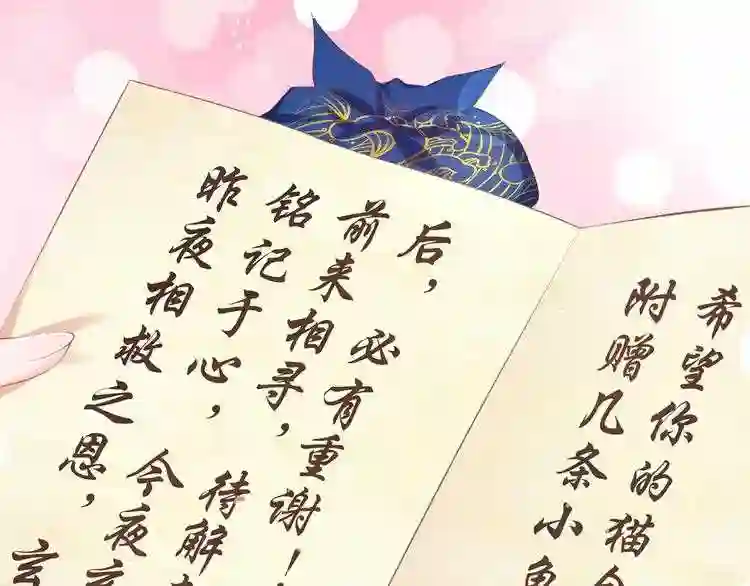 昨夜相救之恩，玄
铭记于心，今夜
前来相寻，待解
后，必有重谢！
附赠几条小鱼
希望你的猫